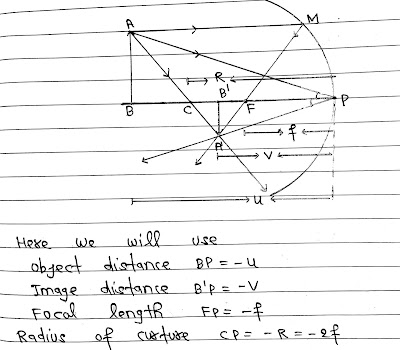 A
M
R
B'
B
C
F
P
f
A'
V
u
Here we will use
Object distance BP = -u
Image distance B'P = -V
Focal length FP = -f
Radius of curture CP = -R = -2f